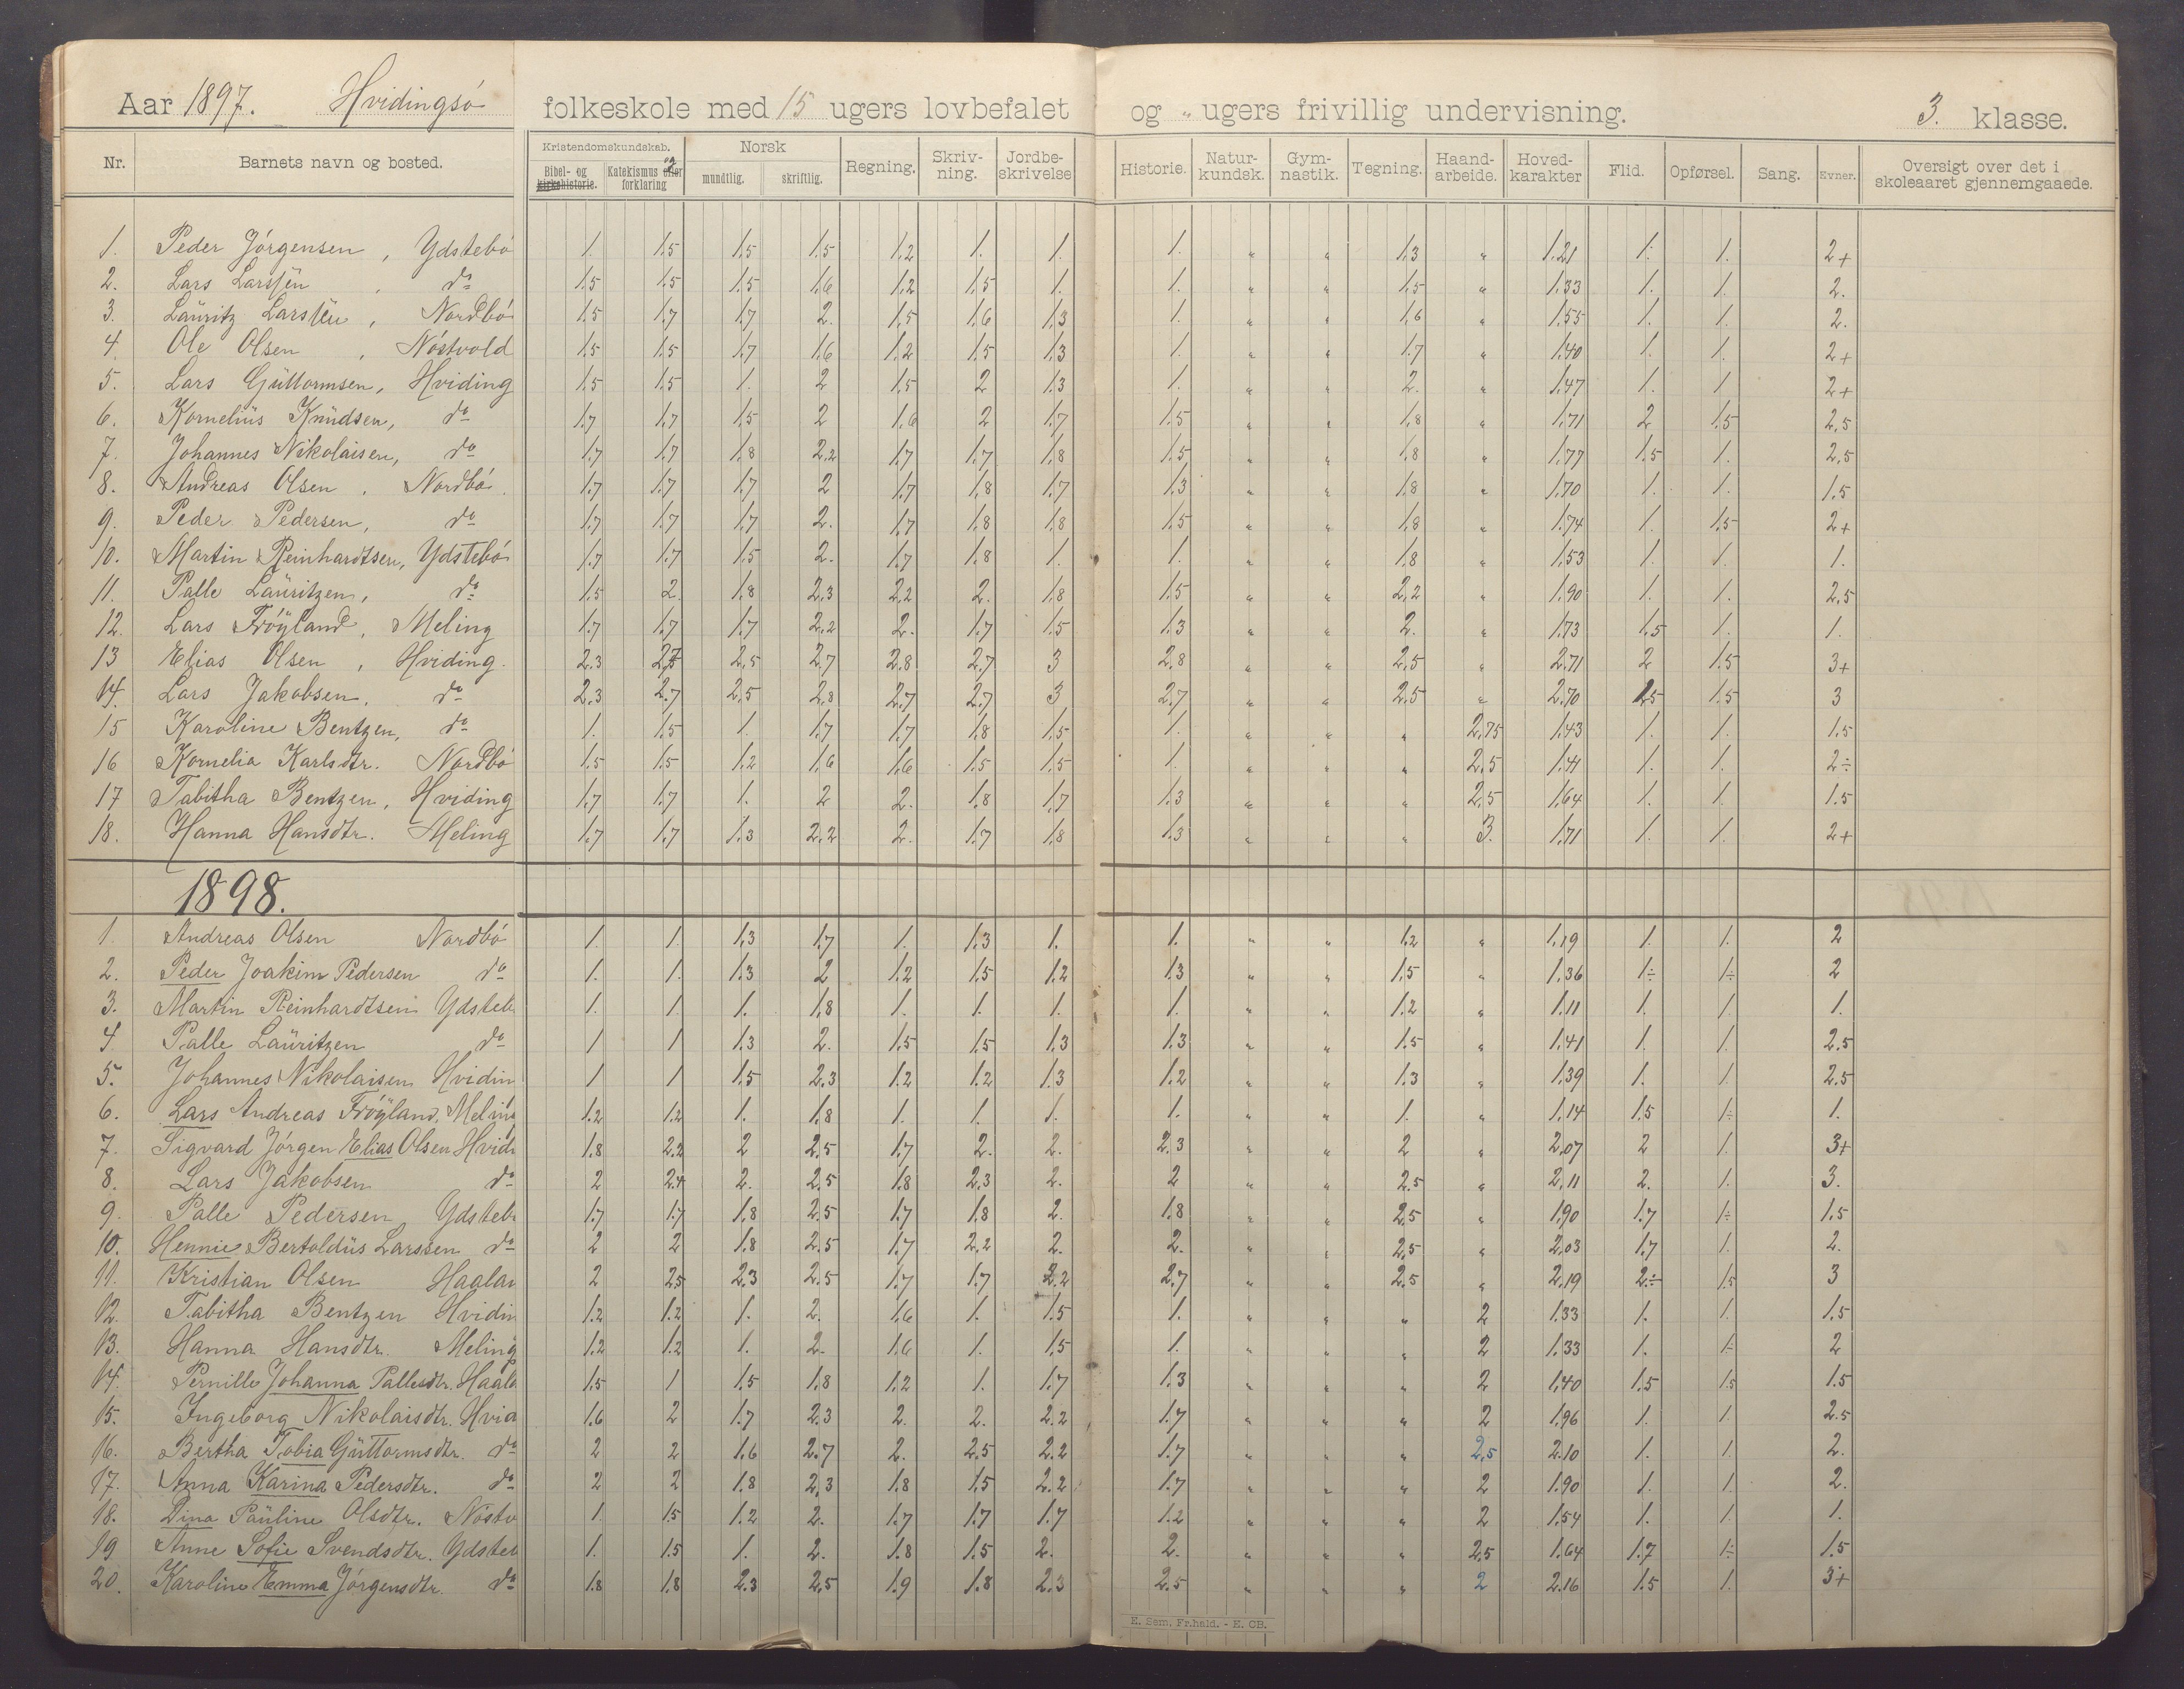 Aar 1897. Hvidingsö folkeskole med 15 ugers lovbefalet og " ugers frivillig undervisning. 3. klasse.
Nr. Barnets navn og bosted. Kristendomskundskab. Bibel- og kirkehistorie. Katekismus og forklaring Norsk mundtlig. skriftlig. Regning. Skrivning. Jordbeskrivelse Historie. Naturkundsk. Gymnastik. Tegning. Haandarbeide. Hovedkarakter Flid. Opførsel. Sang. Evner. Oversigt over det i skoleaaret gjennemgaaede.
1. Peder Jörgensen, Ydstebö 1. 1.5 1.5 1.5 1.2 1. 1. 1. " " 1.3 " 1.21 1. 1. 2+
2. Lars Larssen, do 1.5 1.5 1.5 1.6 1.2 1.5 1. 1. " " 1.5 " 1.33 1. 1. 2.
3. Lauritz Larssen, Nordbö 1.5 1.7 1.7 2. 1.5 1.6 1.3 1. " " 1.6 " 1.55 1. 1. 2.
4. Ole Olsen, Nöstvold 1.5 1.5 1.7 1.6 1.2 1.5 1.3 1. " " 1.7 " 1.40 1. 1. 2+
5. Lars Guttormsen, Hviding 1.5 1.5 1. 2 1.5 2 1.3 1. " " 2. " 1.47 1. 1 2+
6. Kornelius Knudsen, do 1.7 1.7 1.5 2 1.6 2 1.7 1.5 " " 1.8 " 1.71 2 1.5 2.5
7. Johannes Nikolaisen, do 1.7 1.7 1.8 2.2 1.7 1.7 1.8 1.5 " " 1.8 " 1.77 1.5 1. 2.5
8. Andreas Olsen, Nordbö. 1.7 1.7 1.7 2 1.7 1.8 1.7 1.3 " " 1.8 " 1.70 1. 1. 1.5
9. Peder Pedersen, do 1.7 1.7 1.7 2. 1.7 1.8 1.8 1.5 " " 1.8 " 1.74 1. 1.5 2+
10. Martin Reinhardtsen, Ydstebö 1.7 1.7 1.5 2. 1.7 1.8 1. 1. " " 1.8 " 1.53 1. 1. 1.
11. Palle Lauritzen, do 1.5 2. 1.8 2.3 2.2 2. 1.8 1.5 " " 2.2 " 1.90 1. 1. 2.5
12. Lars Fröyland, Meling 1.7 1.7 1.7 2.2 2. 1.7 1.5 1.3 " " 2. " 1.73 1.5 1. 1.
13 Elias Olsen, Hviding. 2.3 2.7 2.5 2.7 2.8 2.7 3 2.8 " " 2.5 " 2.71 2 1.5 3+
14. Lars Jakobsen, do 2.3 2.7 2.5 2.8 2.7 2.7 3 2.7 " " 2.5 " 2.70 2.5 1.5 3
15 Karoline Bentzen, do 1. 1.5 1. 1.7 1.7 1.8 1.5 1. " " " 2.75 1.43 1. 1. 1.5
16 Kornelia Karlsdtr. Nordbö 1.5 1.5 1.2 1.6 1.6 1.5 1.5 1. " " " 2.5 1.41 1. 1. 2÷
17 Tabitha Bentzen, Hviding 1.7 1.7 1. 2 2. 1.8 1.7 1.3 " " " 2.5 1.64 1. 1. 1.5
18. Hanna Hansdtr. Meling 1.7 1.7 1.3 2.2 2. 1.7 1.8 1.3 " " " 3. 1.71 1. 1. 2+
1898.
1. Andreas Olsen Nordbö 1. 1. 1.3 1.7 1. 1.3 1. 1. " " 1.2 " 1.19 1. 1. 2
2. Peder Joakim Pedersen do 1. 1. 1.3 2 1.2 1.5 1.2 1.3 " " 1.5 " 1.36 1÷ 1÷ 2
3. Martin Reinhardtsen Ydsteb 1. 1. 1. 1.8 1. 1. 1. 1. " " 1.2 " 1.11 1. 1. 1.
4. Palle Lauritzen do 1 1 1.3 2. 1.5 1.5 1.3 1.3 " " 1.5 " 1.41 1. 1. 2.5
5. Johannes Nikolaisen Hvidin 1 1 1.5 2.3 1.2 1.2 1.3 1.2 " " 1.3 " 1.39 1. 1. 2.5
6. Lars Andreas Fröyland, Meling 1.2 1.2 1. 1.8 1. 1. 1. 1. " " 1. " 1.14 1.5 1÷ 1.
7. Sigvard Jörgen Elias Olsen Hvidi 1.8 2.2 2 2.5 1.7 2. 2. 2.3 " " 2 " 2.07 2 1. 3+
8. Lars Jakobsen do 2 2.4 2. 2.5 1.8 2.3 2. 2 " " 2.5 " 2.11 2. 1. 3.
9. Palle Pedersen Ydsteb 1.7 1.7 1.8 2.5 1.7 1.8 2. 1.8 " " 2.5 " 1.90 1.7 1÷ 1.5
10. Hennie Bertoldus Larssen do 2 2 1.8 2.5 1.7 2.2 2. 2. " " 2.5 " 2.03 1.7 1. 2.
11. Kristian Olsen Haalan 2 2.5 2.3 2.5 1.7 1.7 2.2 2.7 " " 2.5 " 2.19 2÷ 1.5 3
12. Tabitha Bentzen Hvidin 1.2 1.2 1. 2. 1.6 1. 1.5 1. " " " 2 1.33 1. 1. 1.5
13. Hanna Hansdtr. Meling 1.2 1.2 1. 2. 1.6 1. 1.5 1. " " " 2 1.33 1. 1÷ 2
14. Pernille Johanna Pallesdtr. Haala 1.5 1 1.5 1.8 1.2 1. 1.7 1.3 " " " 2 1.40 1.5 1.5 1.5
15. Ingeborg Nikolaisdtr. Hvid 1.6 2 1.7 2.3 2. 2. 2.2 1.7 " " " 2 1.96 1. 1. 2.5
16. Bertha Tobia Guttormsdtr. do 2 2 1.6 2.7 2. 2.5 2.2 1.7 " " " 2.5 2.10 1. 1. 2.
17. Anna Karina Pedersdtr. do 2 2 1.8 2.3 1.8 1.5 2.2 1.7 " " " 2 1.90 1. 1. 2.
18. Dina Pauline Olsdtr. Nöstv 1. 1.5 1.2 2. 1.7 1.7 1.7 1.2 " " " 2 1.54 1. 1. 1.
19 Anne Sofie Svendsdtr. Ydsteb 1. 1.5 1. 2. 1.8 1.5 2. 2. " " " 2.5 1.64 1.7 1÷ 1.5
20. Karoline Emma Jörgensdtr. do 1.8 1.8 2.3 2.5 1.9 1.8 2.3 2.5 " " " 2 2.16 1.5 1. 3+
E. Sem, Fr.hald. - E. CB.